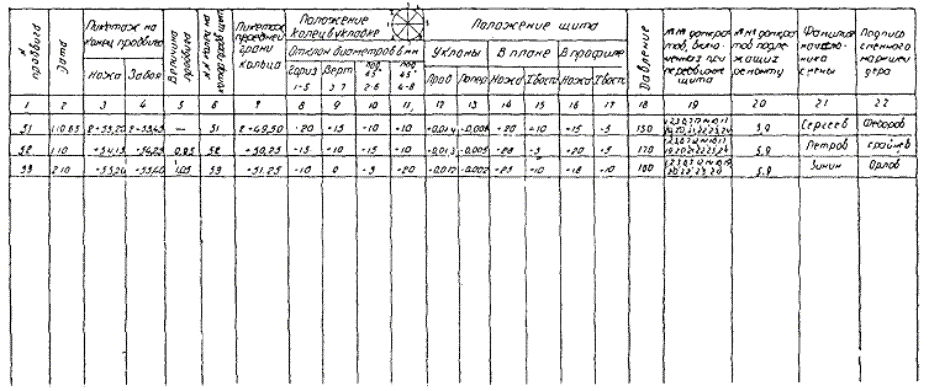 N продвига
Дата
Пикетаж на конец продвига
Ножа
Забоя
Величина продвига
Пикетаж передней грани кольца
Положение колец в укладке
Отклон диаметров в мм
Гориз 1-5
Верт 3-7
под 45° 2-6
под 45° 4-8
Положение щита
Уклоны
В плане
В профиле
Прод
Попер
Ножа
Хвост
Ножа
Хвост
Давление
NN домкратов, включенных при передвижке щита
NN домкратов подлежащих ремонту
Фамилия начальника смены
Подпись сменного маркшейдера
1 2 3 4 5 6 7 8 9 10 11 12 13 14 15 16 17 18 19 20 21 22
51 110.85 2+53,20 2+53,45 — 51 2+49,50 -20 +15 +10 +10 +0,014 -0,008 +20 +10 +15 +5 150 5,9 Сергеев Федоров
52 1.10 +54,15 +54,25 0,95 52 +50,25 -15 -10 +15 -10 +0,013 -0,005 +5 +20 +5 170 5,9 Петров
53 2.10 +55,20 +55,40 1,05 53 +51,25 -10 0 +5 +20 +0,012 -0,002 +25 +10 +18 +10 160 5,9 Зинин Орлов